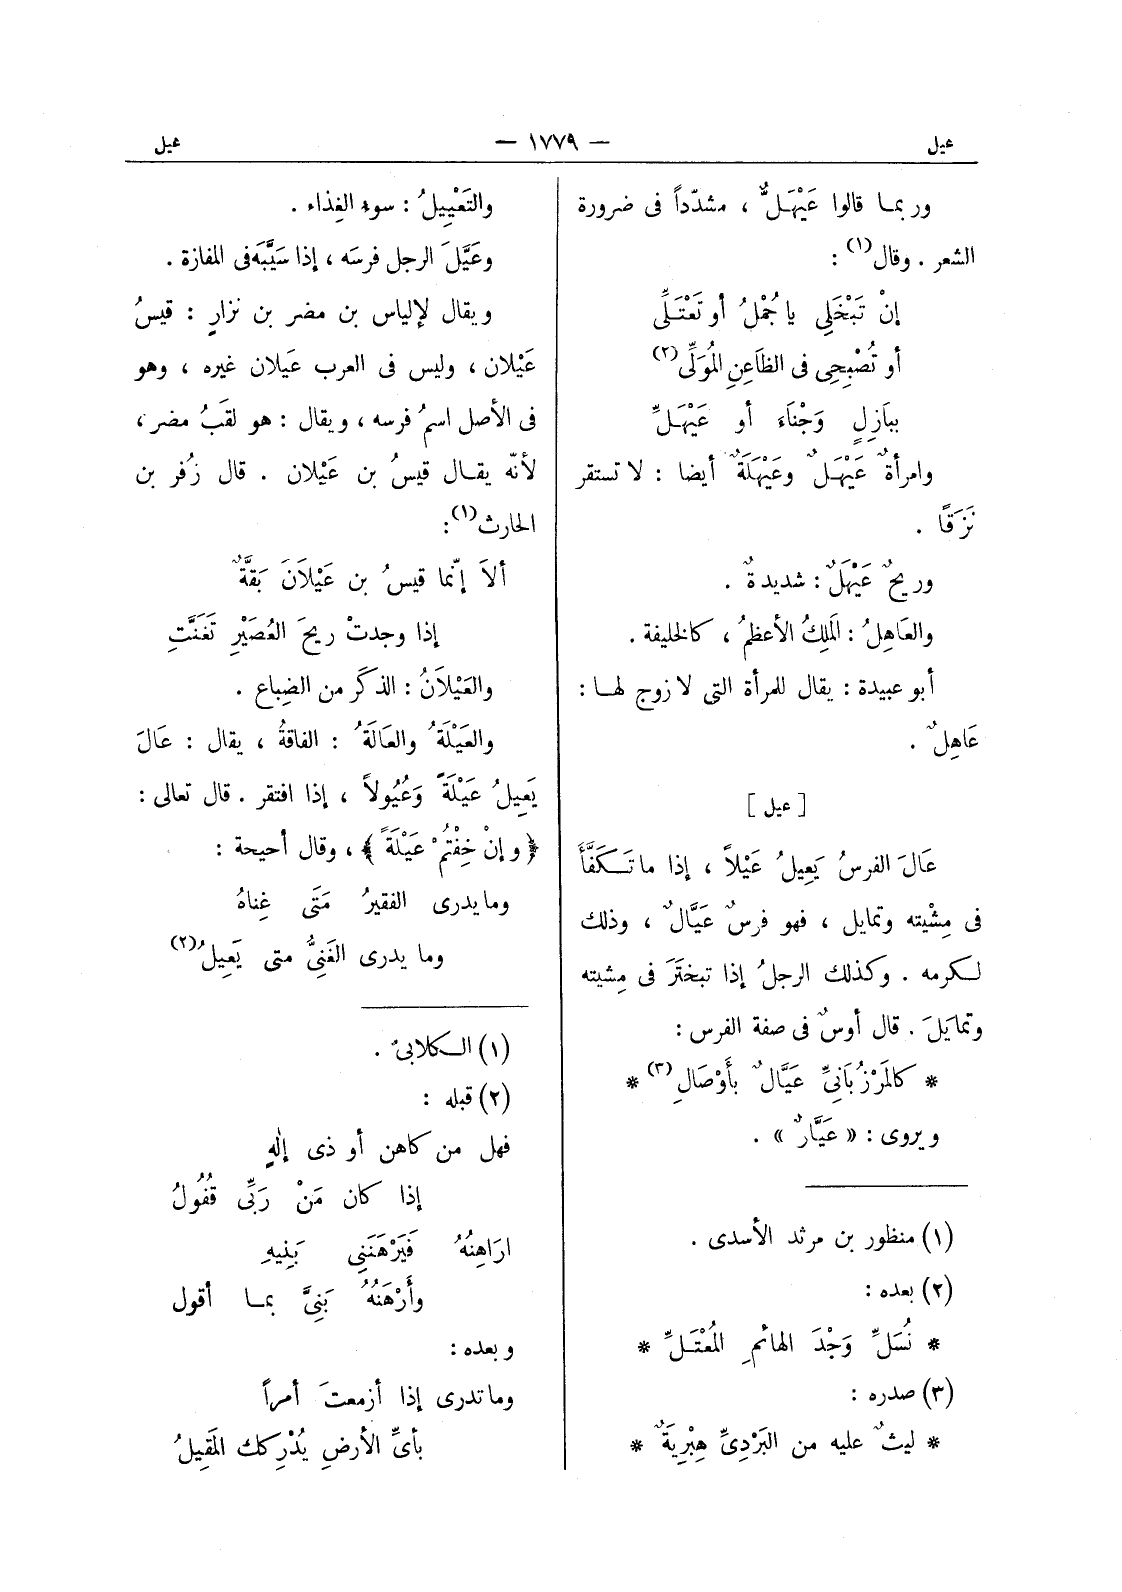 عيل — ١٧٧٩ — عيل
وربما قالوا عَيْهَلٌّ ، مشدّداً فى ضرورة
الشعر . وقال(١) :
إنْ تَبْخَلِى يا جُمْلُ أو تَعْتَلِّى
أو تُصْبِحِى فى الظاَعِنِ المُوَلِّى(٢)
ببَازِلٍ وَجْنَاءَ أو عَيْهَلِّ
وامرأةٌ عَيْهَلٌ وعَيْهَلَةٌ أيضا : لا تستقر
نَزَقًا .
وريحٌ عَيْهَلٌ : شديدةٌ .
والعَاهِلُ : المَلِكُ الأعظمُ ، كالخليفة .
أبو عبيدة : يقال للمرأة التى لا زوج لها :
عَاهِلٌ .
[ عيل ]
عَالَ الفرسُ يَعِيلُ عَيْلاً ، إذا ما تَكَفَّأَ
فى مِشْيته وتمايل ، فهو فرسٌ عَيَّالٌ ، وذلك
لكرمه . وكذلك الرجلُ إذا تبختَرَ فى مِشيته
وتمايَلَ . قال أوسٌ فى صفة الفرس :
* كالمَرْزُبَانِىِّ عَيَّالٌ بأَوْصَالِ(٣) *
ويروى : « عَيَّارٌ » .
(١) منظور بن مرثد الأسدى .
(٢) بعده :
* نُسَلِّ وَجْدَ الهائمِ المُعْتَلِّ *
(٣) صدره :
* ليثٌ عليه من البَرْدِىِّ هِبْرِيَةٌ *
والتَعْيِيلُ : سوء الغِذاء .
وعَيَّلَ الرجل فرسَه ، إذا سَيَّبَه فى المفازة .
ويقال لإلياس بن مضر بن نزارٍ : قيسُ
عَيْلان ، وليس فى العرب عَيلان غيره ، وهو
فى الأصل اسمُ فرسه ، ويقال : هو لقَبُ مضر ،
لأنّه يقال قيسُ بن عَيْلان . قال زُفر بن
الحارث(١) :
ألاَ إنّما قيسُ بن عَيْلاَنَ بَقةٌَّ
إذا وجدتْ ريحَ العُصَيْرِ تَغَنَّتِ
والعَيْلاَنُ : الذكَر من الضِباع .
والعَيْلَةُ والعَالَةُ : الفاقةُ ، يقال : عَالَ
يَعِيلُ عَيْلَةً وَعُيُولاً ، إذا افتقر . قال تعالى :
﴿ وإنْ خِفْتُمْ عَيْلَةً ﴾ ، وقال أحيحة :
وما يدرى الفقيرُ مَتَى غِناهُ
وما يدرى الغَنِىُّ متى يَعِيلُ(٢)
(١) الكلابىُّ .
(٢) قبله :
فهل من كاهن أو ذى إلٰهٍ
إذا كان مَنْ رَبِّى قُفُولُ
ارَاهِنُهُ فَيَرْهَنَنِى بَنِيهِ
وأَرْهَنُهُ بَنِىَّ بما أقول
وبعده :
وما تدرى إذا أزمعتَ أمراً
بأىِّ الأرضِ يُدْرِكك المَقِيلُ